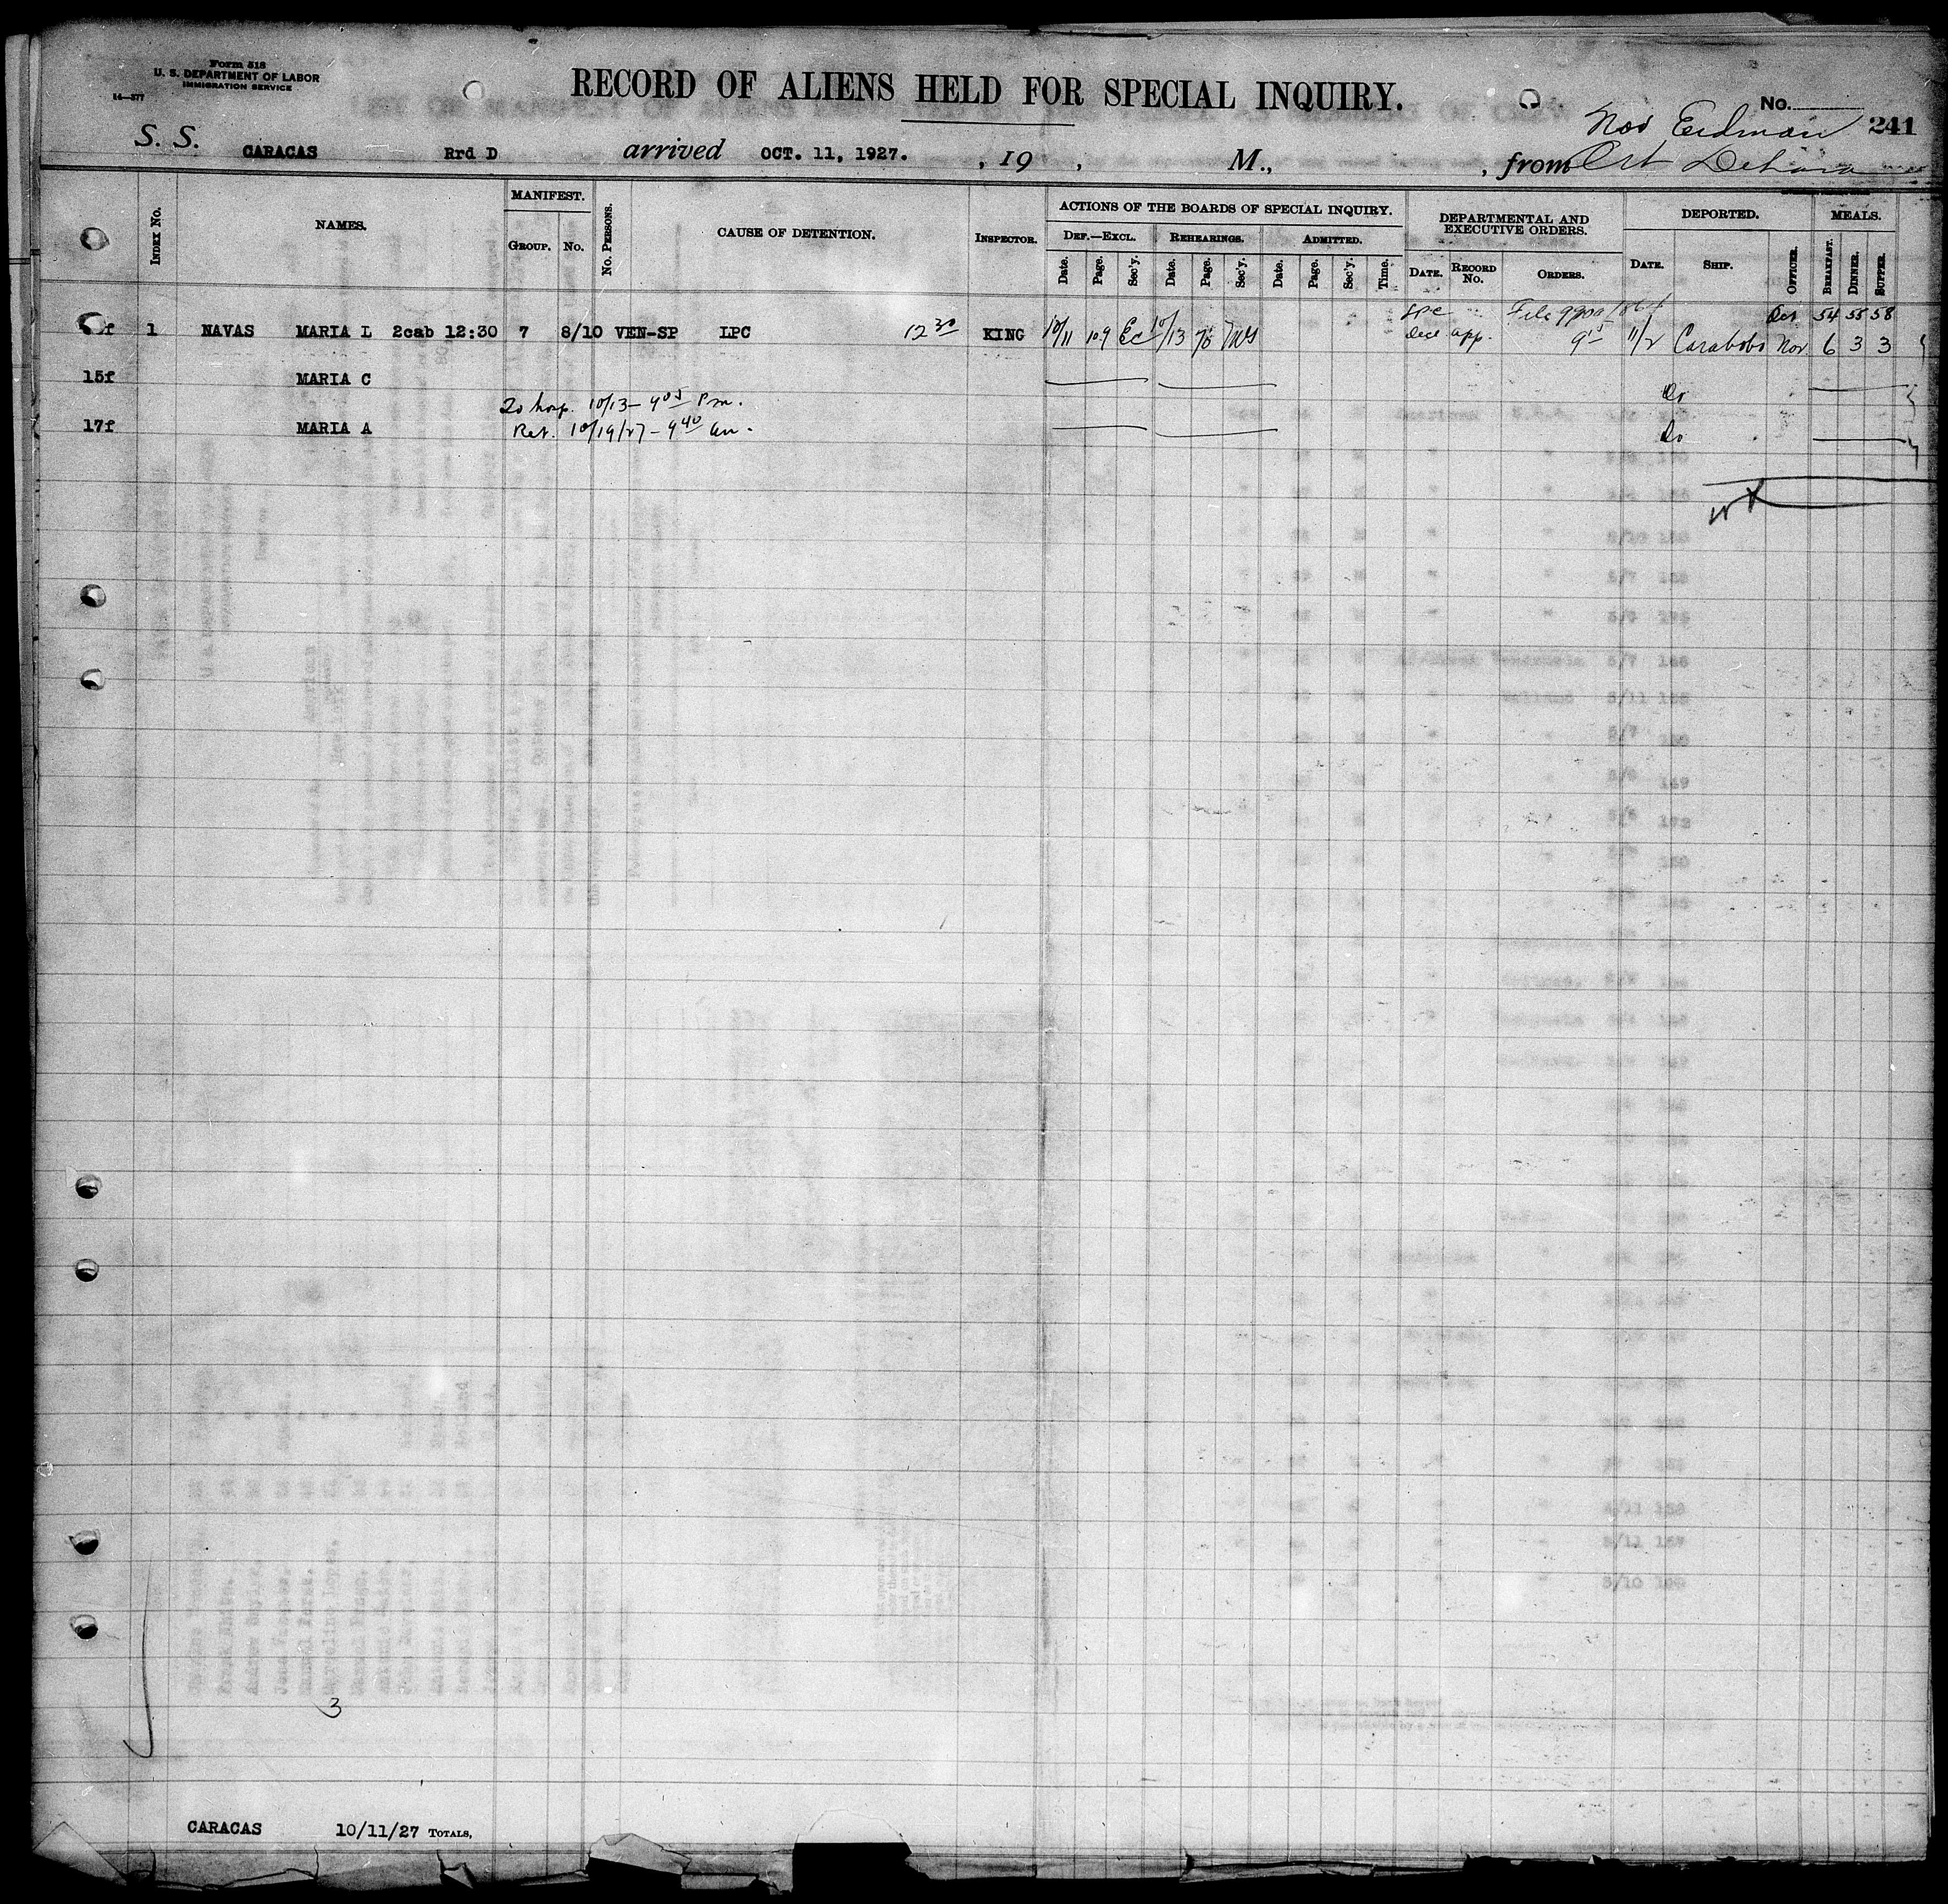 Form 518
U. S. DEPARTMENT OF LABOR
IMMIGRATION SERVICE
14—377
RECORD OF ALIENS HELD FOR SPECIAL INQUIRY.
No.
241
Nov Erdman
S. S. CARACAS Rrd D arrived OCT. 11, 1927. , 19 , M., , from Oct
Index No.
NAMES.
MANIFEST.
Group.
No.
No. Persons.
CAUSE OF DETENTION.
Inspector.
ACTIONS OF THE BOARDS OF SPECIAL INQUIRY.
Def.—Excl.
Rehearings.
Admitted.
Date. Page. Sec'y. Date. Page. Sec'y. Date. Page. Sec'y. Time.
DEPARTMENTAL AND EXECUTIVE ORDERS.
Date. Record No. Orders.
DEPORTED.
Date. Ship. Officer.
MEALS.
Breakfast. Dinner. Supper.
File Oct 54 55 58
f 1 NAVAS MARIA L 2cab 12:30 7 8/10 VEN-SP LPC 12 30 KING 10/11 109 Ec 10/13 78 app. 11/2 Carabobo Nov 6 3 3
15f MARIA C Do
To hosp. 10/13 — 4 05 Pm.
17f MARIA A Ret. 10/19/27 — 9 40 am. Do
3
CARACAS 10/11/27 Totals,